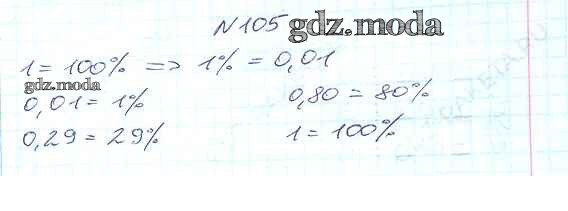 N105 gdz.moda
1 = 100% => 1% = 0,01
gdz.moda
0,01 = 1%
0,80 = 80%
0,29 = 29%
1 = 100%